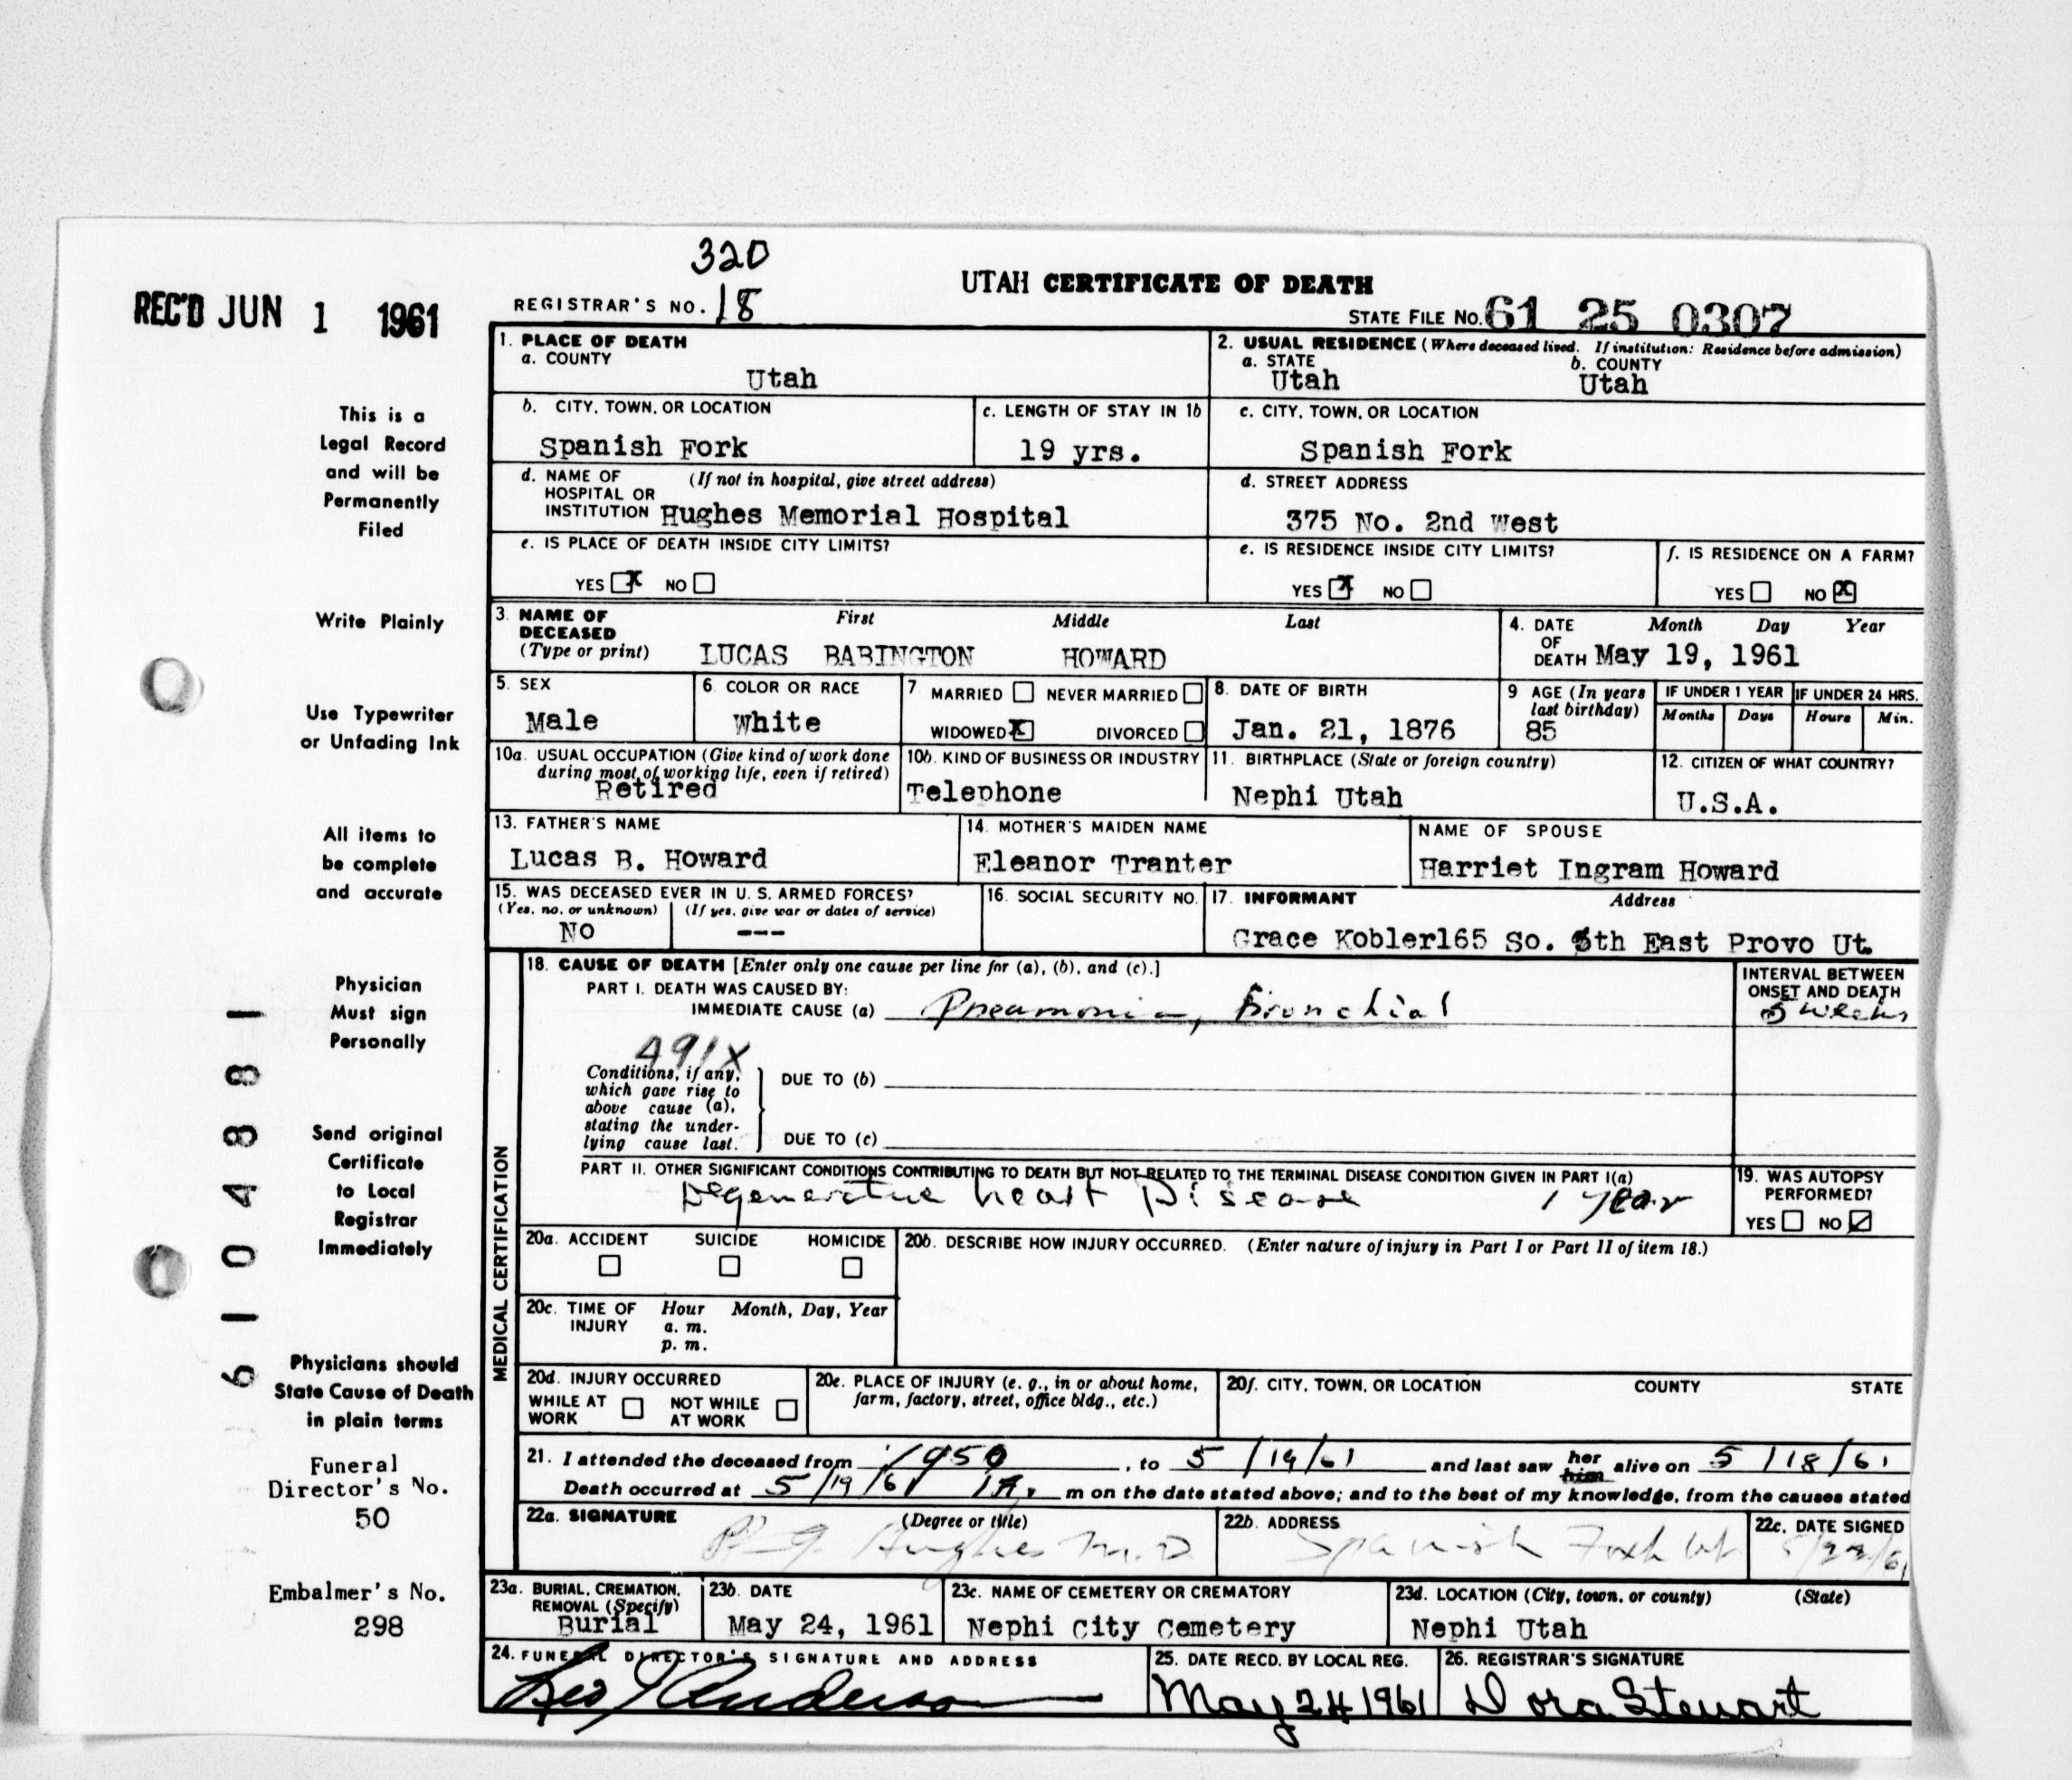 320
UTAH CERTIFICATE OF DEATH
REC'D JUN 1 1961
REGISTRAR'S NO. 18
STATE FILE NO. 61 25 0307
1. PLACE OF DEATH
a. COUNTY
Utah
2. USUAL RESIDENCE (Where deceased lived. If institution: Residence before admission)
a. STATE
Utah
b. COUNTY
Utah
b. CITY, TOWN, OR LOCATION
Spanish Fork
c. LENGTH OF STAY IN 1b
19 yrs.
c. CITY, TOWN, OR LOCATION
Spanish Fork
d. NAME OF (If not in hospital, give street address)
HOSPITAL OR
INSTITUTION Hughes Memorial Hospital
d. STREET ADDRESS
375 No. 2nd West
e. IS PLACE OF DEATH INSIDE CITY LIMITS?
YES X NO
e. IS RESIDENCE INSIDE CITY LIMITS?
YES X NO
f. IS RESIDENCE ON A FARM?
YES NO X
3. NAME OF DECEASED (Type or print)
First Middle Last
LUCAS BABINGTON HOWARD
4. DATE OF DEATH
Month Day Year
May 19, 1961
5. SEX
Male
6. COLOR OR RACE
White
7. MARRIED NEVER MARRIED
WIDOWED X DIVORCED
8. DATE OF BIRTH
Jan. 21, 1876
9 AGE (In years last birthday)
85
IF UNDER 1 YEAR
Months Days
IF UNDER 24 HRS.
Hours Min.
10a. USUAL OCCUPATION (Give kind of work done
during most of working life, even if retired)
Retired
10b. KIND OF BUSINESS OR INDUSTRY
Telephone
11. BIRTHPLACE (State or foreign country)
Nephi Utah
12. CITIZEN OF WHAT COUNTRY?
U.S.A.
13. FATHER'S NAME
Lucas B. Howard
14. MOTHER'S MAIDEN NAME
Eleanor Tranter
NAME OF SPOUSE
Harriet Ingram Howard
15. WAS DECEASED EVER IN U. S. ARMED FORCES?
(Yes, no, or unknown) (If yes, give war or dates of service)
No ---
16. SOCIAL SECURITY NO.
17. INFORMANT Address
Grace Kobler165 So. 5th East Provo Ut.
MEDICAL CERTIFICATION
18. CAUSE OF DEATH [Enter only one cause per line for (a), (b), and (c).]
PART I. DEATH WAS CAUSED BY:
IMMEDIATE CAUSE (a) Pneumonia, Bronchial
INTERVAL BETWEEN
ONSET AND DEATH
weeks
491X
Conditions, if any,
which gave rise to
above cause (a),
stating the under-
lying cause last.
DUE TO (b)
DUE TO (c)
PART II. OTHER SIGNIFICANT CONDITIONS CONTRIBUTING TO DEATH BUT NOT RELATED TO THE TERMINAL DISEASE CONDITION GIVEN IN PART I(a)
Degenerative heart Disease 1 year
19. WAS AUTOPSY
PERFORMED?
YES NO ✓
20a. ACCIDENT SUICIDE HOMICIDE
20b. DESCRIBE HOW INJURY OCCURRED. (Enter nature of injury in Part I or Part II of item 18.)
20c. TIME OF INJURY
Hour Month, Day, Year
a. m.
p. m.
20d. INJURY OCCURRED
WHILE AT WORK NOT WHILE AT WORK
20e. PLACE OF INJURY (e. g., in or about home,
farm, factory, street, office bldg., etc.)
20f. CITY, TOWN, OR LOCATION COUNTY STATE
21. I attended the deceased from 1950, to 5/19/61 and last saw her him alive on 5/18/61
Death occurred at 5/19/61 1 A. m on the date stated above; and to the best of my knowledge, from the causes stated
22a. SIGNATURE (Degree or title)
Hughes M.D
22b. ADDRESS
Spanish Fork Ut
22c. DATE SIGNED
23a. BURIAL, CREMATION,
REMOVAL (Specify)
Burial
23b. DATE
May 24, 1961
23c. NAME OF CEMETERY OR CREMATORY
Nephi City Cemetery
23d. LOCATION (City, town, or county) (State)
Nephi Utah
24. FUNERAL DIRECTOR'S SIGNATURE AND ADDRESS
Anderson
25. DATE RECD. BY LOCAL REG.
May 24 1961
26. REGISTRAR'S SIGNATURE
Dora Stewart
This is a
Legal Record
and will be
Permanently
Filed
Write Plainly
Use Typewriter
or Unfading Ink
All items to
be complete
and accurate
Physician
Must sign
Personally
Send original
Certificate
to Local
Registrar
Immediately
Physicians should
State Cause of Death
in plain terms
Funeral
Director's No.
50
Embalmer's No.
298
6104881